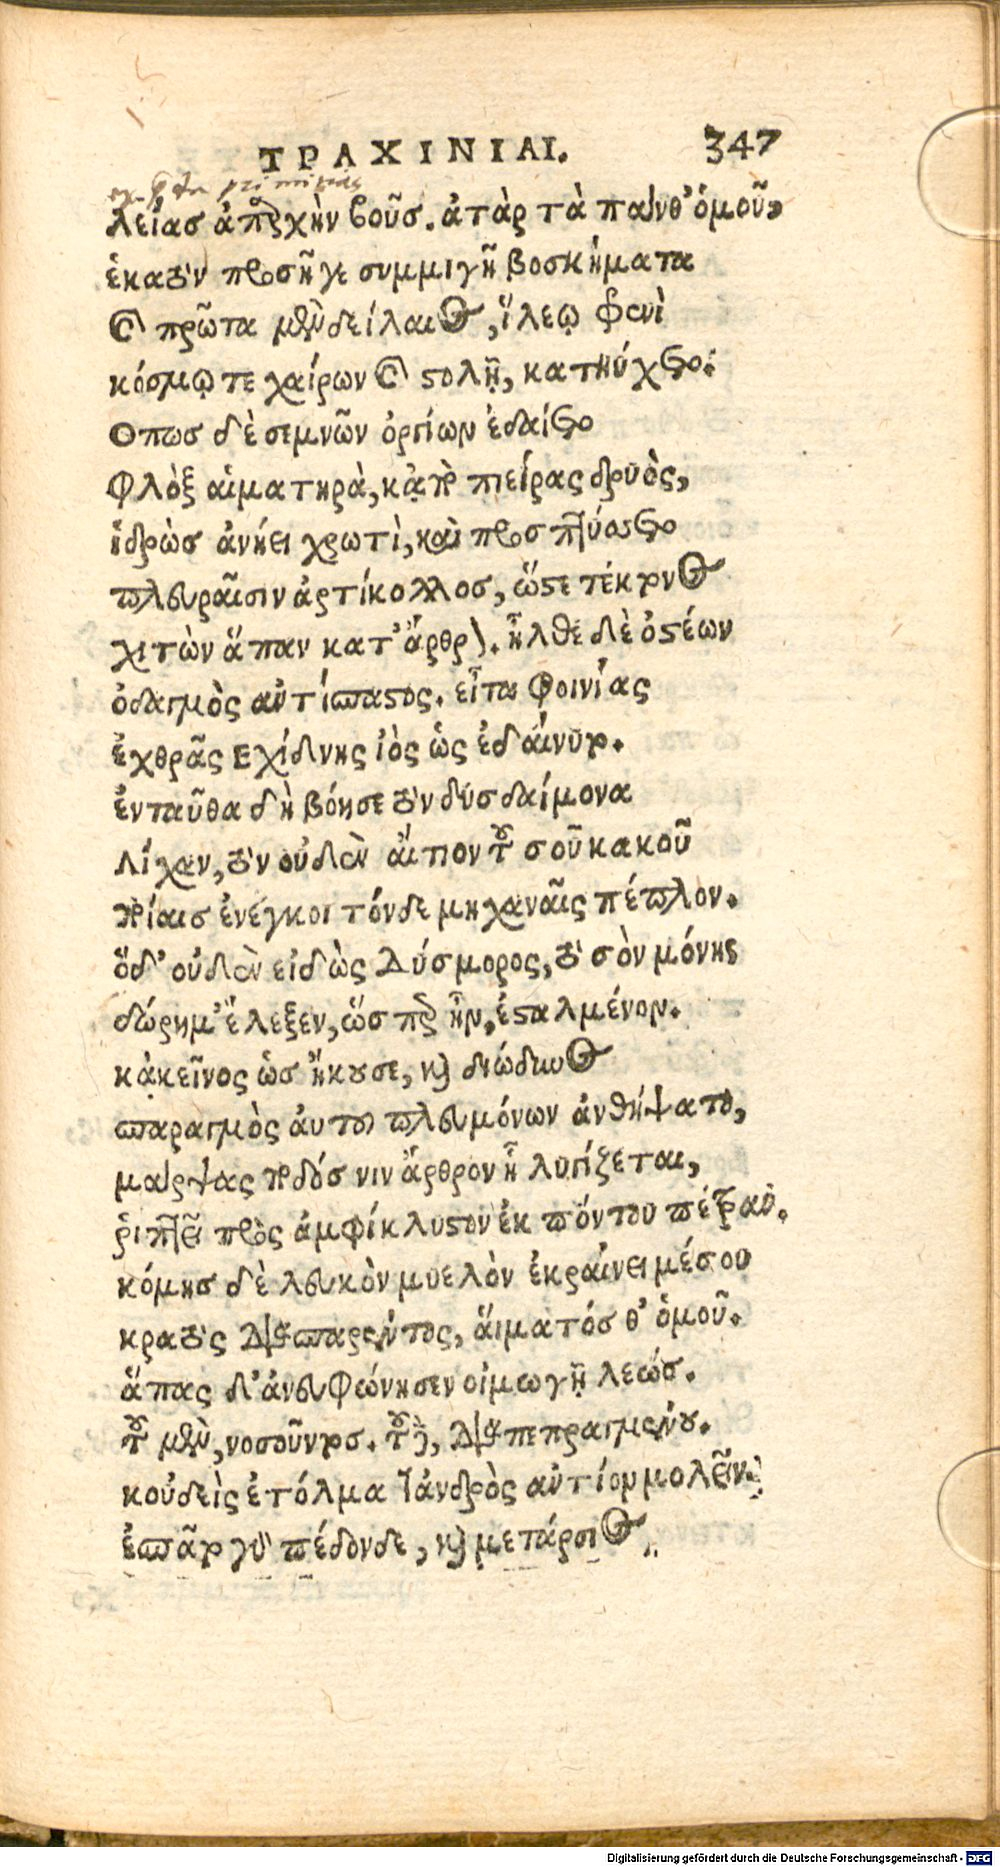 ΤΡΑΧΙΝΙΑΙ. 347
λείας ἀπαρχὴν βοῦς. ἀτὰρ τὰ πάνθ' ὁμοῦ,
ἑκατὸν προσῆγε συμμιγῆ βοσκήματα
καὶ πρῶτα μὲν δείλαιος, ἵλεῳ φρενὶ
κόσμῳ τε χαίρων καὶ στολῇ, κατηύχετο.
Οπως δὲ σεμνῶν ὀργίων ἐδαίετο
φλὸξ αἱματηρὰ, κἀπὸ πιείρας δρυὸς,
ἱδρὼς ἀνῄει χρωτὶ, καὶ προσπτύσσετο
πλευραῖσιν ἀρτίκολλος, ὥστε τέκτονος
χιτὼν ἅπαν κατ' ἄρθρον. ἦλθε δὲ ὀστέων
ὀδαγμὸς ἀντίσπαστος. εἶτα φοινίας
ἐχθρᾶς Εχίδνης ἰὸς ὡς ἐδαίνυτο.
ἐνταῦθα δὴ βόησε τὸν δυσδαίμονα
Λίχαν, τὸν οὐδὲν αἴτιον τοῦ σοῦ κακοῦ
ποίαις ἐνέγκοι τόνδε μηχαναῖς πέπλον.
ὅδ' οὐδὲν εἰδὼς Δύσμορος, τὸ σὸν μόνης
δώρημ' ἔλεξεν, ὥσπερ ἦν, ἐσταλμένον.
κἀκεῖνος ὡς ἤκουσε, καὶ διώδυνος
σπαραγμὸς αὐτοῦ πλευμόνων ἀνθήψατο,
μάρψας ποδός νιν ἄρθρον ᾗ λυγίζεται,
ῥιπτεῖ πρὸς ἀμφίκλυστον ἐκ πόντου πέτραν.
κόμης δὲ λευκὸν μυελὸν ἐκραίνει μέσου
κρατὸς διασπαρέντος, αἵματός θ' ὁμοῦ.
ἅπας δ' ἀνευφώνησεν οἰμωγῇ λεώς.
τοῦ μὲν, νοσοῦντος. τοῦ δὲ, διαπεπραγμένου.
κοὐδεὶς ἐτόλμα τἀνδρὸς ἀντίον μολεῖν.
ἐσπᾶτο γὰρ πέδονδε, καὶ μετάρσιος,
Digitalisierung gefördert durch die Deutsche Forschungsgemeinschaft - DFG